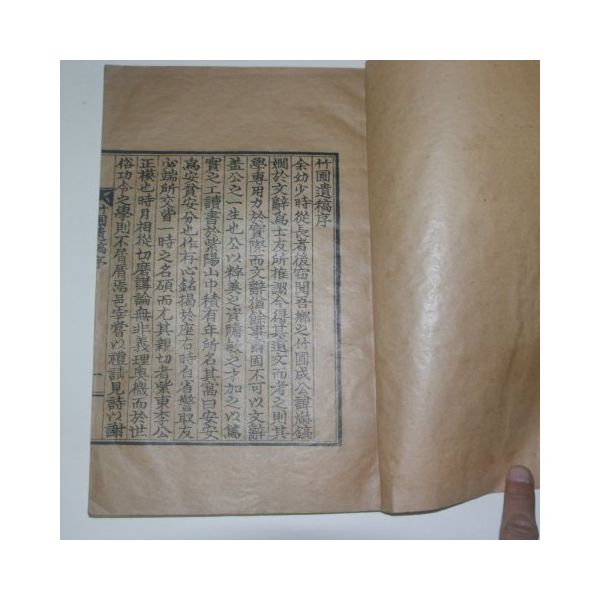 竹圃遺稿序
余幼少時從長者後竊聞吾鄕之竹圃成公諱鎬
嫺於文辭爲士友所推詡今得其遺文而考之則其
學專用力於實際而文辭猶餘事焉固不可以文辭
蓋公之一生也公以粹美之資贍敏之才加之以篤
實之工讀書於紫陽山中積有年所名其窩曰安安
爲安貧安分也作存心銘揭於座右時自省警取友
必端所交皆一時之名碩而尤其親切者紫東李公
正模也時月相從切磨講論無非義理奧機而於世
俗功令之學則不屑屑焉邑宰嘗以禮請見詩以謝
竹圃遺稿序
一